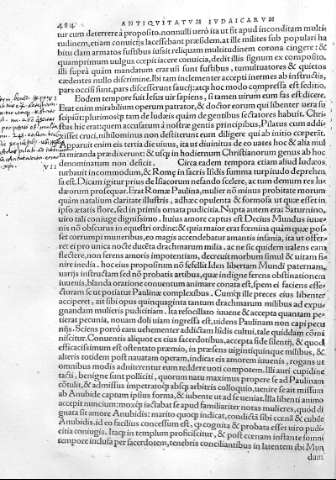 484 ANTIQVITATVM IVDAICARVM
tur cum deterrere à proposito. nonnulli uerò ita ut fit apud inconditam multi
tudinem, etiam conuicijs lacessebant præsidem. at ille milites sub populari ha
bitu clam armatos fustibus iussit reliquam multitudinem corona cingere: &
quamprimum uulgus cœpit iacere conuicia, dedit illis signum ex composito,
illi supra quàm mandatum erat usi sunt fustibus, tumultuantes & quietos
cædentes nullo discrimine. Ita tam inclementer accepti inermes ab instructis,
pars occisi sunt, pars discesserunt saucij: atq; hoc modo compressa est seditio.
Eodem tempore fuit Iesus uir sapiens, si tamen uirum eum fas est dicere.
Erat enim mirabilium operum patrator, & doctor eorum qui libenter uera su
scipiunt: plurimosq; tam de Iudæis quàm de gentibus sectatores habuit. Chris
tus hic erat: quem accusatum à nostræ gentis principibus, Pilatus cum addi-
xisset cruci, nihilominus non destiterunt eum diligere qui ab initio cœperāt.
Apparuit enim eis tertia die uiuus, ita ut diuinitus de eo uates hoc & alia mul
ta miranda prædixerunt: & usq; in hodiernum Christianorum genus ab hoc
denominatum non deficit. Circa eadem tempora etiam aliud Iudæos
turbauit incommodum, & Romę in sacris Isidis summa turpitudo deprehen
sa est. Dicam igitur prius de Isiacorum nefando scelere, ac tum demum res Iu
dæorum prosequar. Erat Romæ Paulina, mulier nō minus probitate morum
quàm natalium claritate illustris, adhæc opulenta & formosa ut quæ esset in
ipso ætatis flore, sed in primis ornata pudicitia. Nupta autem erat Saturnino,
uiro tali coniuge dignissimo. huius amore captus est Decius Mundus iuue-
nis nō obscurus in equestri ordine: & quia maior erat fœmina quàm quæ pos-
set corrumpi muneribus, eo magis accendebatur amantis insania, ita ut offer-
ret ei pro unica nocte ducēta drachmarum milia. ac ne sic quidem ualens eam
flectere, non ferens amoris impotentiam, decreuit morbum simul & uitam fi-
nire inedia. hoc eius propositum nō fefellit Iden libertam Mundi paternam,
uarijs instructam sed nō probatis artibus, quæ indigne ferens obstinationem
iuuenis, blanda oratione conuentum animare conata est, spem ei faciens effe-
cturam se ut potiatur Paulinæ complexibus. Cumq; ille preces eius libenter
acciperet, ait sibi opus quinquaginta tantum drachmarum milibus ad expu-
gnandam mulieris pudicitiam. Ita refocillato iuuene & accepta quantam pe-
tierat pecunia, nouam doli uiam ingressa est, uidens Paulinam non capi pecu
nijs. Sciens porrò eam uehementer addictam Isidis cultui, tale quiddam cōmi
niscitur. Conuentis aliquot ex eius sacerdotibus, accepta fide silentij, & quod
efficacissimum est ostentato præmio, in præsens uigintiquinque milibus, &
alteris totidem post nauatam operam, indicat eis amorem iuuenis, rogans ut
omnibus modis adnitterentur eum reddere uoti compotem. Illi auri cupidine
tacti, benigne sunt polliciti, quorum natu maximus propere se ad Paulinam
cōtulit, & admissus impetratoq; absq; arbitris colloquio, uenire se ait missum
ab Anubide captum ipsius forma, & iubente ut ad se ueniat. Illa libenti animo
accepit nuncium: moxq; iactabat se apud familiariter notas mulieres, quòd di
gnata sit amore Anubidis: marito quoq; indicat, condictā sibi cœnā & cubile
Anubidis. id eo facilius concessum est, q̃ cognita & probata esset uiro pudi-
citia coniugis. Itaq; in templum proficiscitur, & post cœnam instante somni
tempore inclusa per sacerdotem, tenebris conciliantibus in latentem ibi Mun
dum